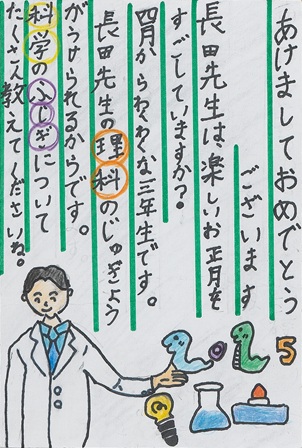 あけましておめでとう
ございます
長田先生は、楽しいお正月を
すごしていますか?
四月からわくわくな三年生です。
長田先生の理科のじゅぎょう
がうけられるからです。
科学のふしぎについて
たくさん教えてくださいね。
2025